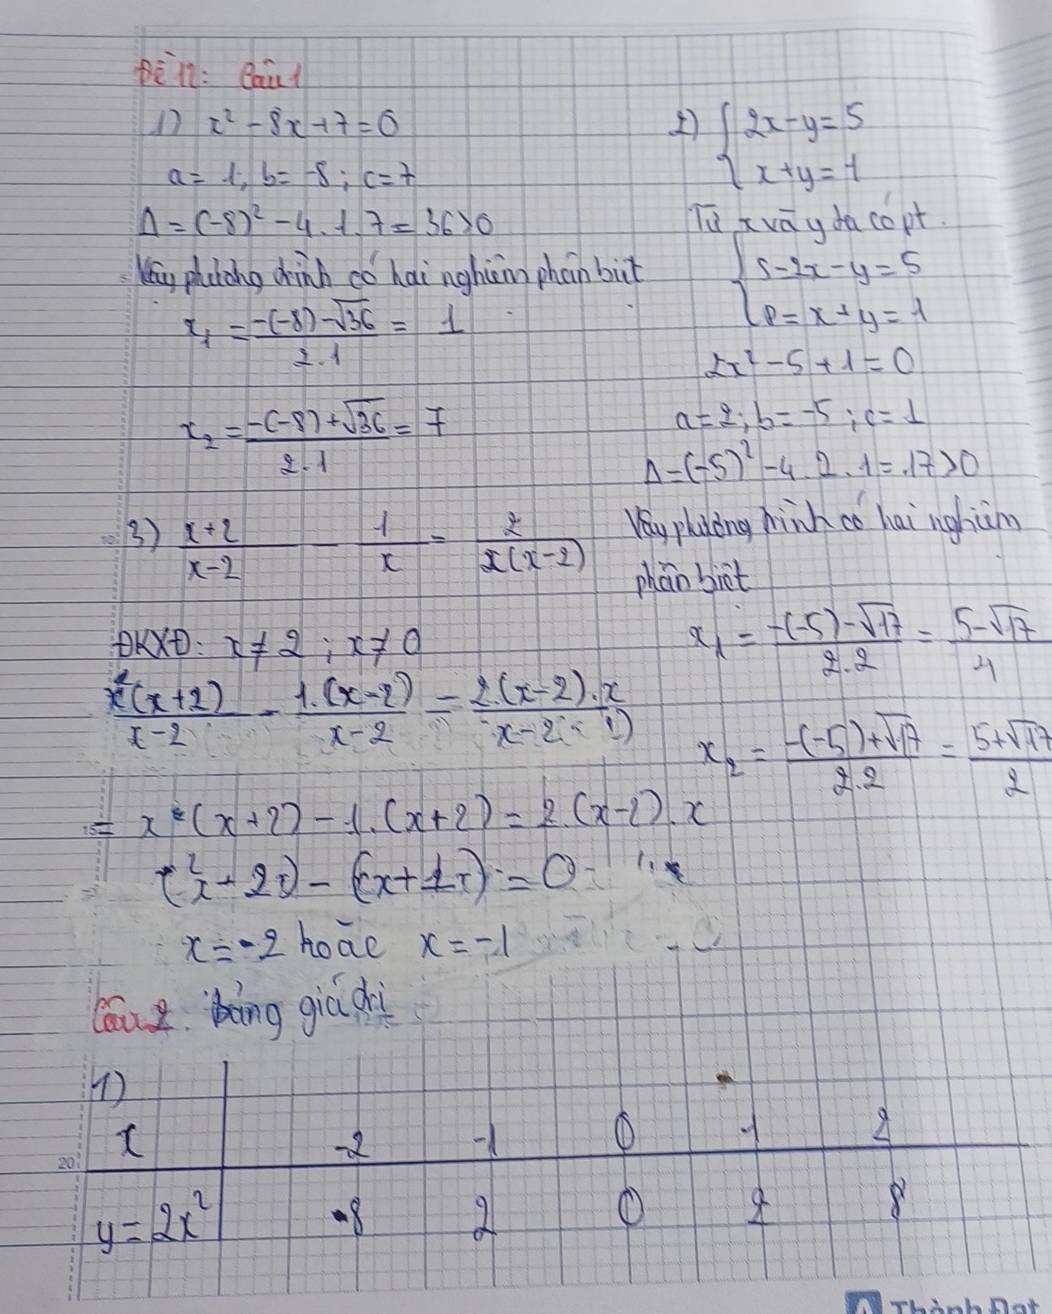 Đề 12: Câu 1
1) x² - 8x + 7 = 0
a = 1, b = -8; c = 7
Δ = (-8)² - 4.1.7 = 36 > 0
Vậy phương trình có hai nghiệm phân biệt
x₁ = (-(-8) - √36) / 2.1 = 1
x₂ = (-(-8) + √36) / 2.1 = 7
2) { 2x - y = 5
{ x + y = 1
Từ x và y ta có pt.
{ S = 2x - y = 5
{ P = x + y = 1
2x² - 5 + 1 = 0
a = 2; b = -5; c = 1
Δ = (-5)² - 4.2.1 = 17 > 0
Vậy phương trình có hai nghiệm
phân biệt
x₁ = (-(-5) - √17) / 2.2 = (5 - √17) / 4
x₂ = (-(-5) + √17) / 2.2 = (5 + √17) / 2
3) (x + 2) / (x - 2) - 1 / x = 2 / x(x - 2)
ĐKXĐ: x ≠ 2; x ≠ 0
(x + 2) / (x - 2) - 1.(x - 2) / (x - 2) = 2.(x - 2).x / x - 2
= x (x + 2) - 1.(x + 2) = 2.(x - 2).x
= 0
x = -2 hoặc x = -1
Câu 2. Bảng giá trị
1)
x -2 -1 0 1 2
y = 2x² 8 2 0 2 8
Thành Đạt